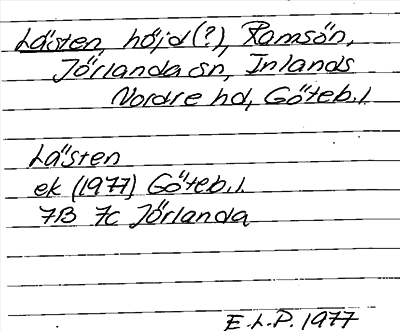 Lästen, höjd (?), Ramsön,
Jörlanda sn, Inlands
Nordre hd, Göteb. l.
Lästen
ek (1977) Göteb. l.
7B 7c Jörlanda
E.L.P. 1977